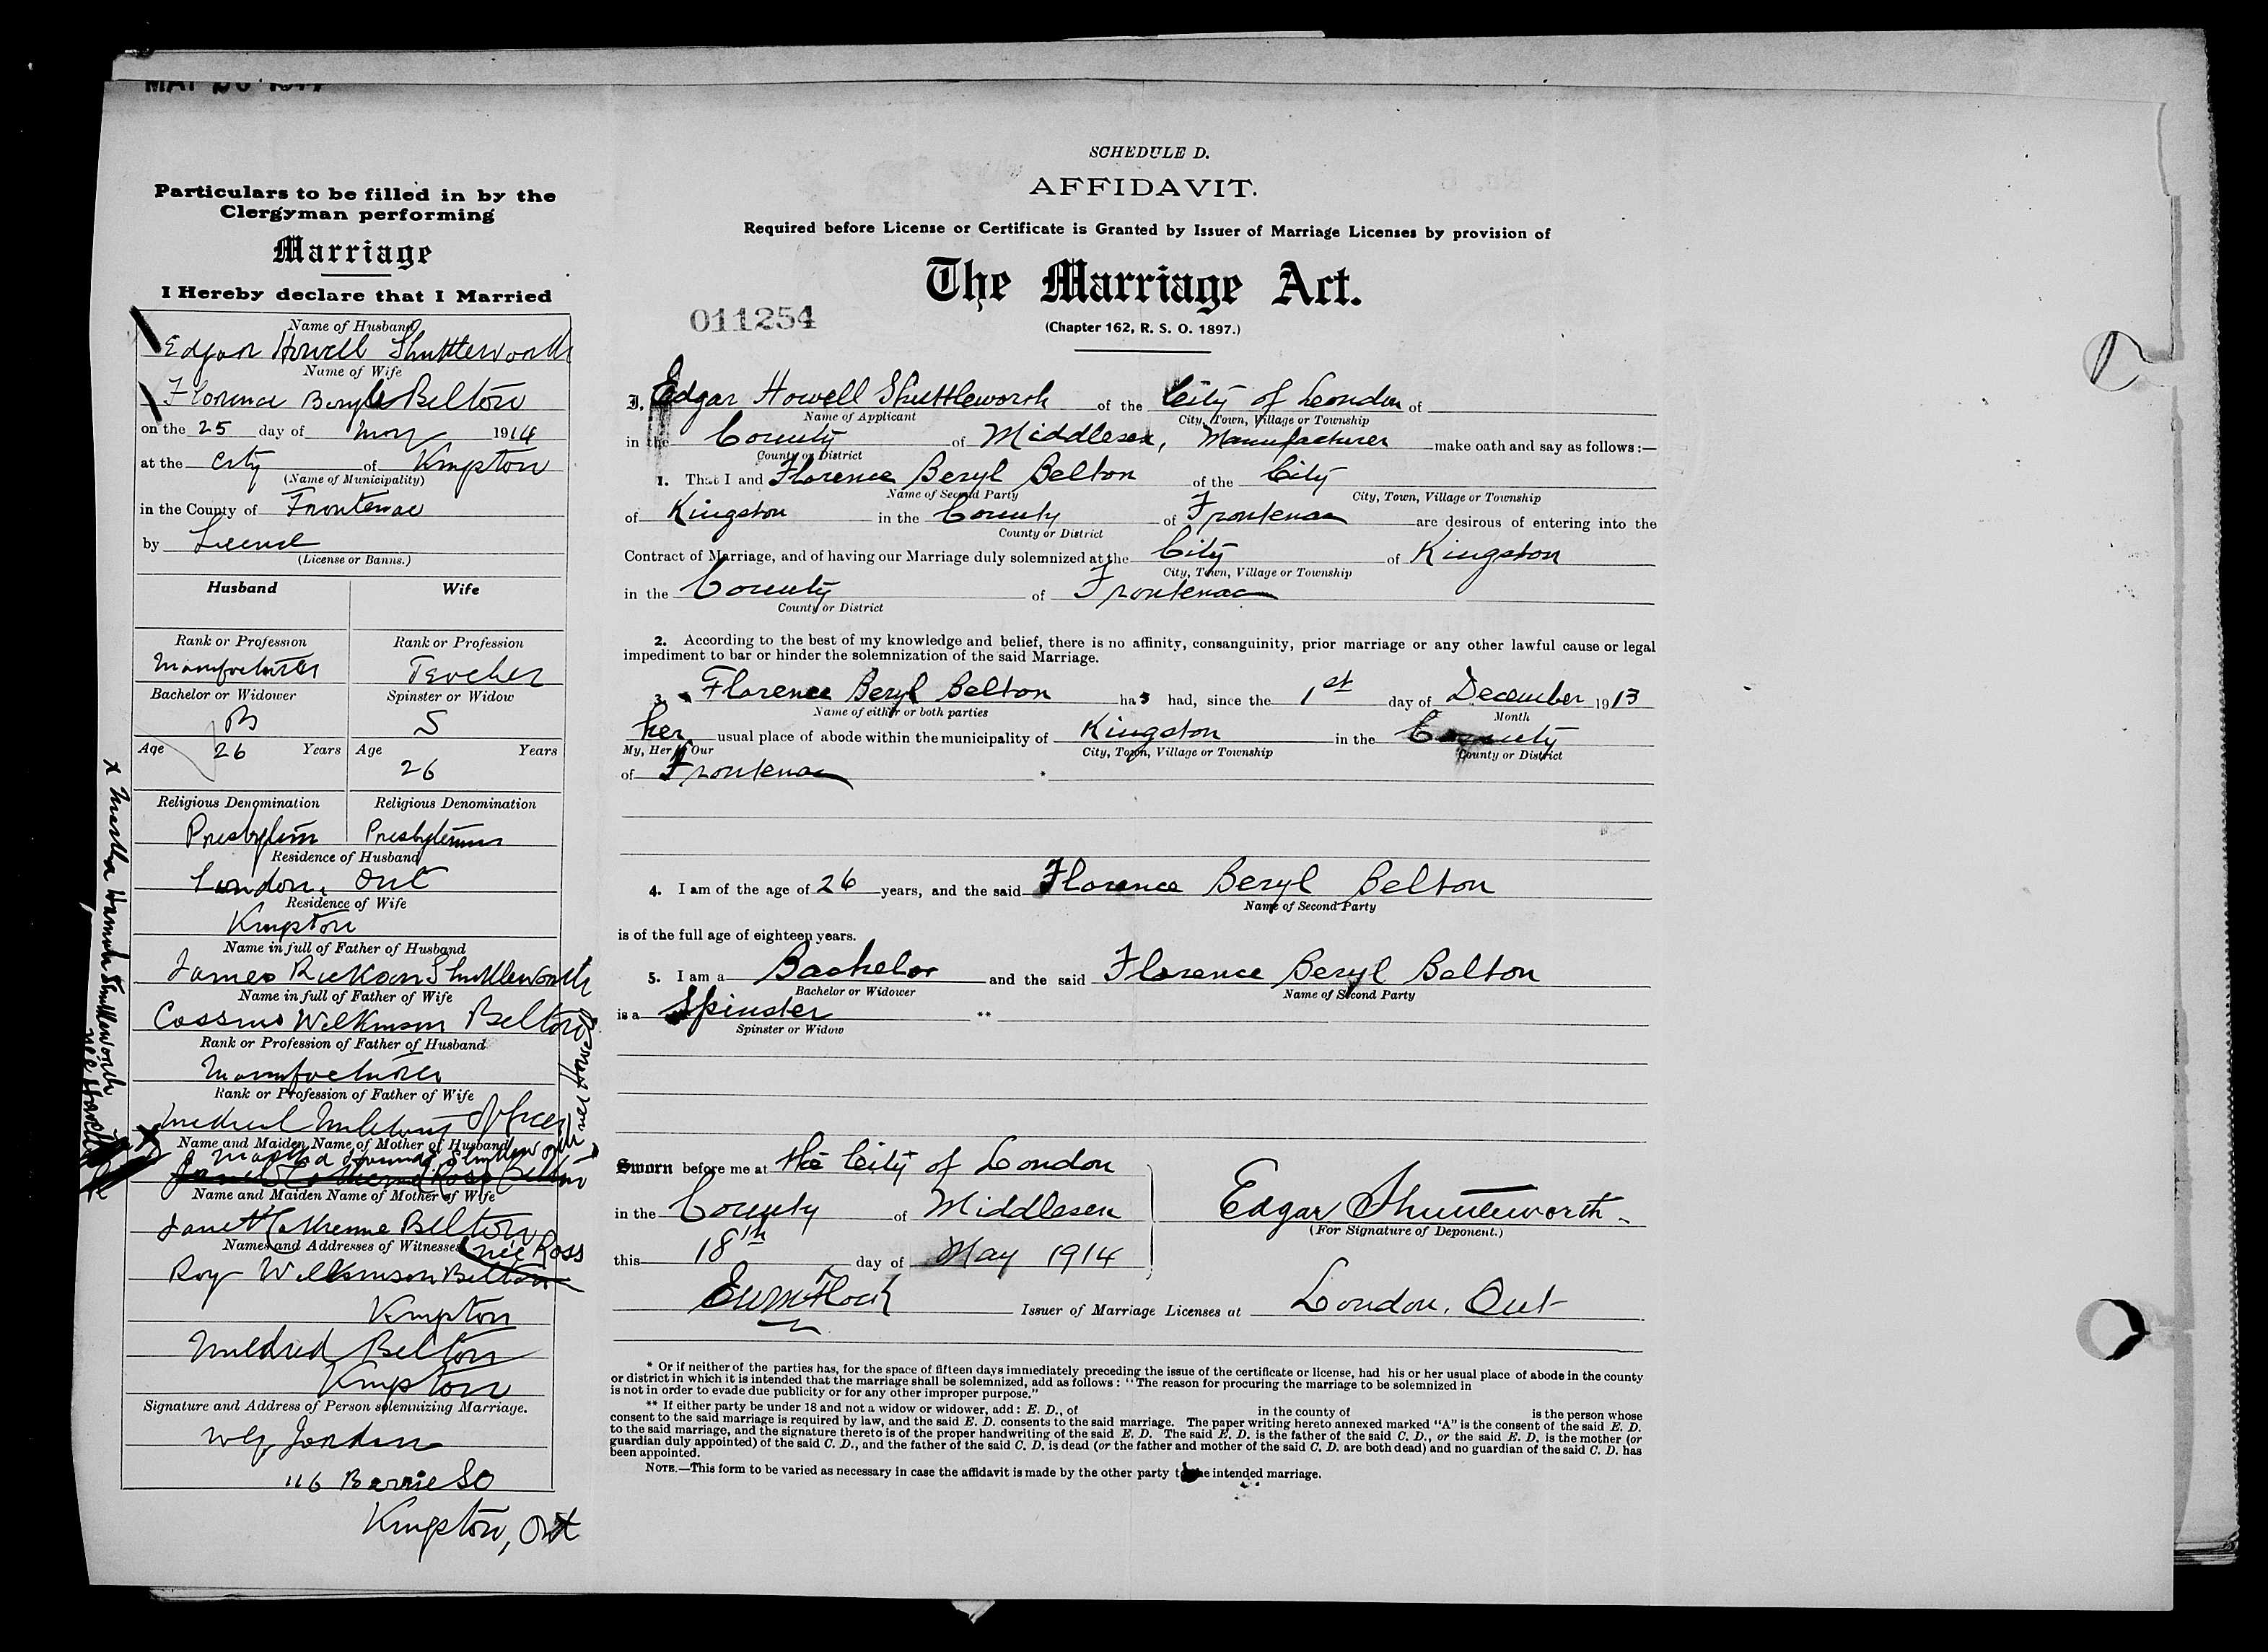 Particulars to be filled in by the
Clergyman performing
Marriage
I Hereby declare that I Married
Name of Husband
Edgar Howell Shuttleworth
Name of Wife
Florence Beryle Belton
on the 25 day of May 1914
at the City of Kingston
(Name of Municipality)
in the County of Frontenac
by License
(License or Banns.)
Husband Wife
Rank or Profession Rank or Profession
Manufacturer Teacher
Bachelor or Widower Spinster or Widow
B S
Age 26 Years Age 26 Years
Religious Denomination Religious Denomination
Presbyterian Presbyterian
Residence of Husband
London, Ont
Residence of Wife
Kingston
Name in full of Father of Husband
James Shuttleworth
Name in full of Father of Wife
Wilkinson Belton
Rank or Profession of Father of Husband
Manufacturer
Rank or Profession of Father of Wife
Medical Military Officer
Name and Maiden Name of Mother of Husband
Martha Hannah Shuttleworth
Name and Maiden Name of Mother of Wife
Janet Catherine Belton
née Ross
Names and Addresses of Witnesses
Roy Wilkinson Belton
Kingston
Mildred Belton
Kingston
Signature and Address of Person solemnizing Marriage.
Jordan
116 Barrie St
Kingston, Ont
x Martha Hannah Shuttleworth
née
SCHEDULE D.
AFFIDAVIT.
Required before License or Certificate is Granted by Issuer of Marriage Licenses by provision of
The Marriage Act.
011254
(Chapter 162, R. S. O. 1897.)
I, Edgar Howell Shuttleworth of the City of London of
Name of Applicant City, Town, Village or Township
in the County of Middlesex, Manufacturer make oath and say as follows:—
County or District
1. That I and Florence Beryl Belton of the City
Name of Second Party City, Town, Village or Township
of Kingston in the County of Frontenac are desirous of entering into the
County or District
Contract of Marriage, and of having our Marriage duly solemnized at the City of Kingston
City, Town, Village or Township
in the County of Frontenac
County or District
2. According to the best of my knowledge and belief, there is no affinity, consanguinity, prior marriage or any other lawful cause or legal
impediment to bar or hinder the solemnization of the said Marriage.
3. Florence Beryl Belton has had, since the 1st day of December 1913
Name of either or both parties Month
her usual place of abode within the municipality of Kingston in the County
My, Her or Our City, Town, Village or Township County or District
of Frontenac *
4. I am of the age of 26 years, and the said Florence Beryl Belton
Name of Second Party
is of the full age of eighteen years.
5. I am a Bachelor and the said Florence Beryl Belton
Bachelor or Widower Name of Second Party
is a Spinster **
Spinster or Widow
Sworn before me at the City of London
in the County of Middlesex Edgar Shuttleworth
(For Signature of Deponent.)
this 18th day of May 1914
Issuer of Marriage Licenses at London, Ont
* Or if neither of the parties has, for the space of fifteen days immediately preceding the issue of the certificate or license, had his or her usual place of abode in the county
or district in which it is intended that the marriage shall be solemnized, add as follows: "The reason for procuring the marriage to be solemnized in
is not in order to evade due publicity or for any other improper purpose."
** If either party be under 18 and not a widow or widower, add: E. D., of in the county of is the person whose
consent to the said marriage is required by law, and the said E. D. consents to the said marriage. The paper writing hereto annexed marked "A" is the consent of the said E. D.
to the said marriage, and the signature thereto is of the proper handwriting of the said E. D. The said E. D. is the father of the said C. D., or the said E. D. is the mother (or
guardian duly appointed) of the said C. D., and the father of the said C. D. is dead (or the father and mother of the said C. D. are both dead) and no guardian of the said C. D. has
been appointed.
NOTE.—This form to be varied as necessary in case the affidavit is made by the other party to the intended marriage.